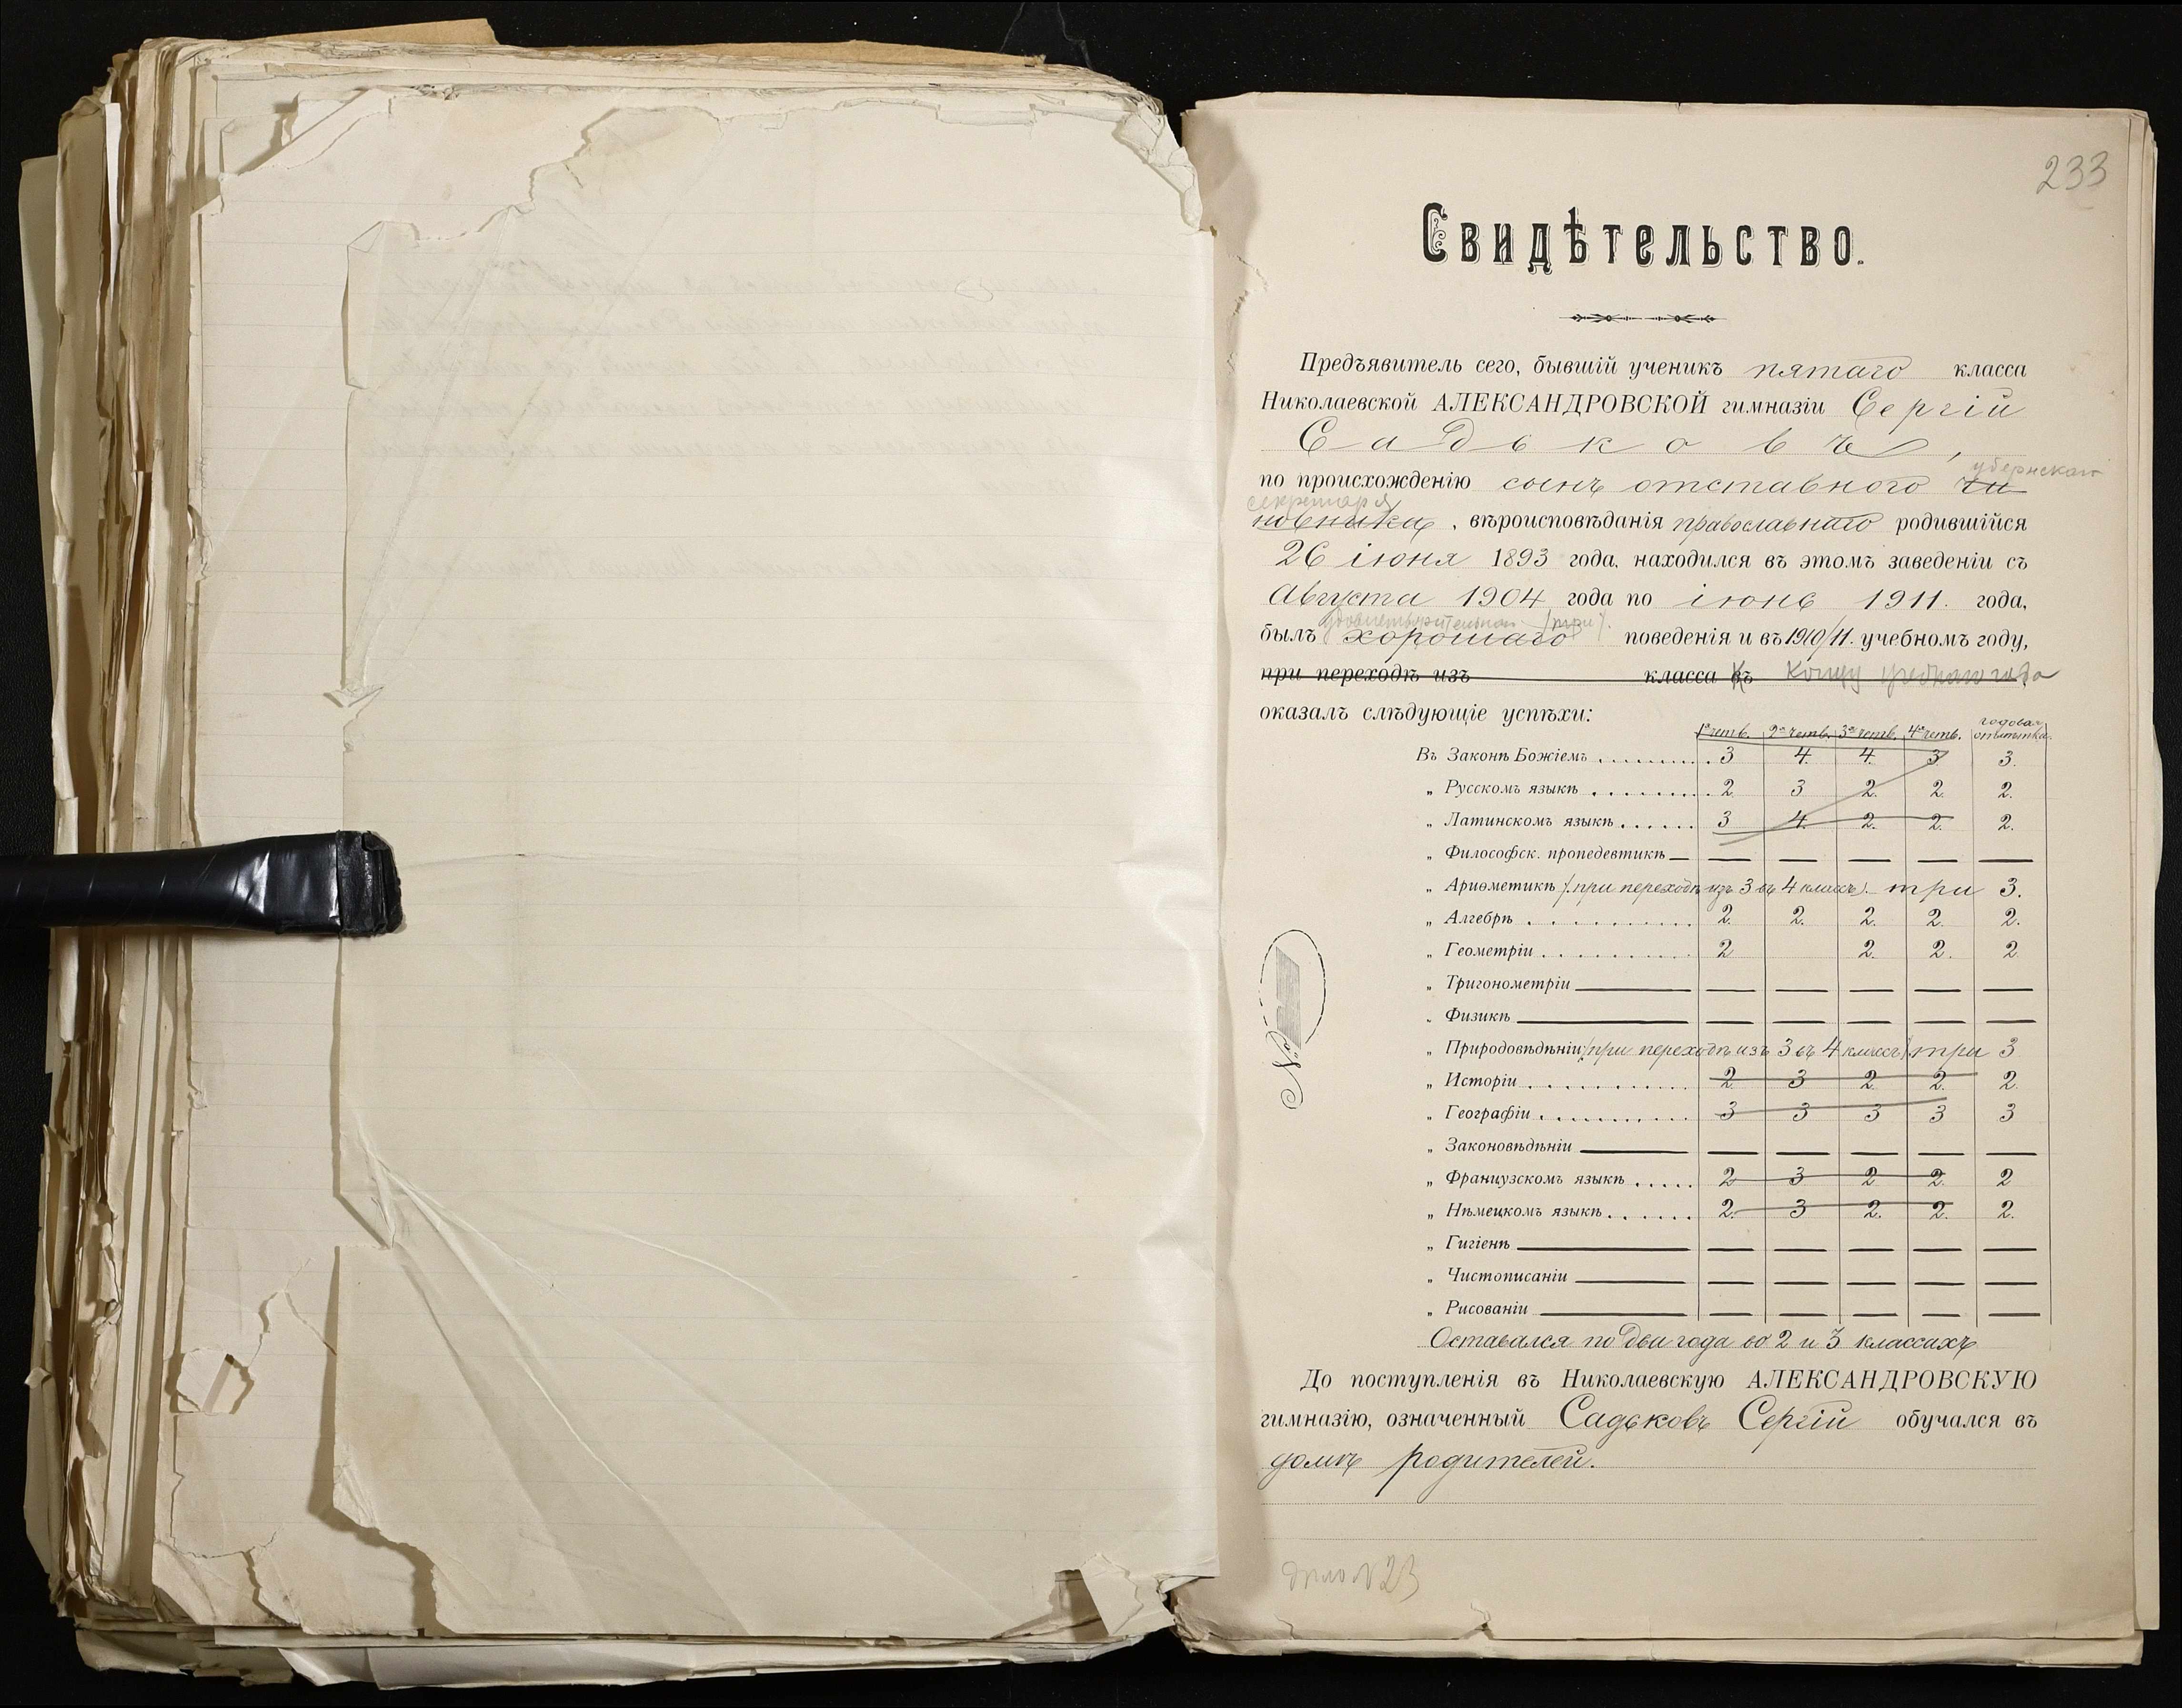 233
Свидѣтельство.
Предъявитель сего, бывшій ученикъ пятаго класса
Николаевской АЛЕКСАНДРОВСКОЙ гимназіи Сергій
Садьковъ,
губернскаго
по происхожденію сынъ отставного чи
секретаря
новника, вѣроисповѣданія православнаго родившійся
26 іюня 1893 года, находился въ этомъ заведеніи съ
Августа 1904 года по іюнь 1911. года,
удовлетворительнаго (три)
былъ хорошаго поведенія и въ 1910/11. учебномъ году,
при переходѣ изъ класса къ концу учебнаго года
оказалъ слѣдующіе успѣхи:
1я четв. 2я четв. 3я четв. 4я четв. годовая отмѣтка.
Въ Законѣ Божіемъ . . . . . . . . . . 3 4. 4. 3 3.
„ Русскомъ языкѣ . . . . . . . . . . 2 3 2. 2. 2.
„ Латинскомъ языкѣ . . . . . . 3 4. 2. 2. 2.
„ Философск. пропедевтикѣ — — — — — —
„ Ариѳметикѣ (при переходѣ изъ 3 въ 4 классъ). три 3.
„ Алгебрѣ . . . . . . . . . . . 2. 2. 2. 2. 2.
„ Геометріи . . . . . . . . . . 2 2. 2. 2
„ Тригонометріи — — — — — —
„ Физикѣ — — — — — —
„ Природовѣдѣніи (при переходѣ изъ 3 въ 4 классъ) три 3
„ Исторіи . . . . . . . . . . . . 2 3 2 2. 2.
„ Географіи . . . . . . . . . . . 3 3 3 3 3
„ Законовѣдѣніи — — — — — —
„ Французскомъ языкѣ . . . . . 2 3 2 2. 2
„ Нѣмецкомъ языкѣ . . . . . . . 2. 3 2. 2. 2.
„ Гигіенѣ — — — — — —
„ Чистописаніи — — — — — —
„ Рисованіи — — — — — —
Оставался по два года во 2 и 3 классахъ
№
До поступленія въ Николаевскую АЛЕКСАНДРОВСКУЮ
гимназію, означенный Садьковъ Сергій обучался въ
домѣ родителей.
дѣло № 23